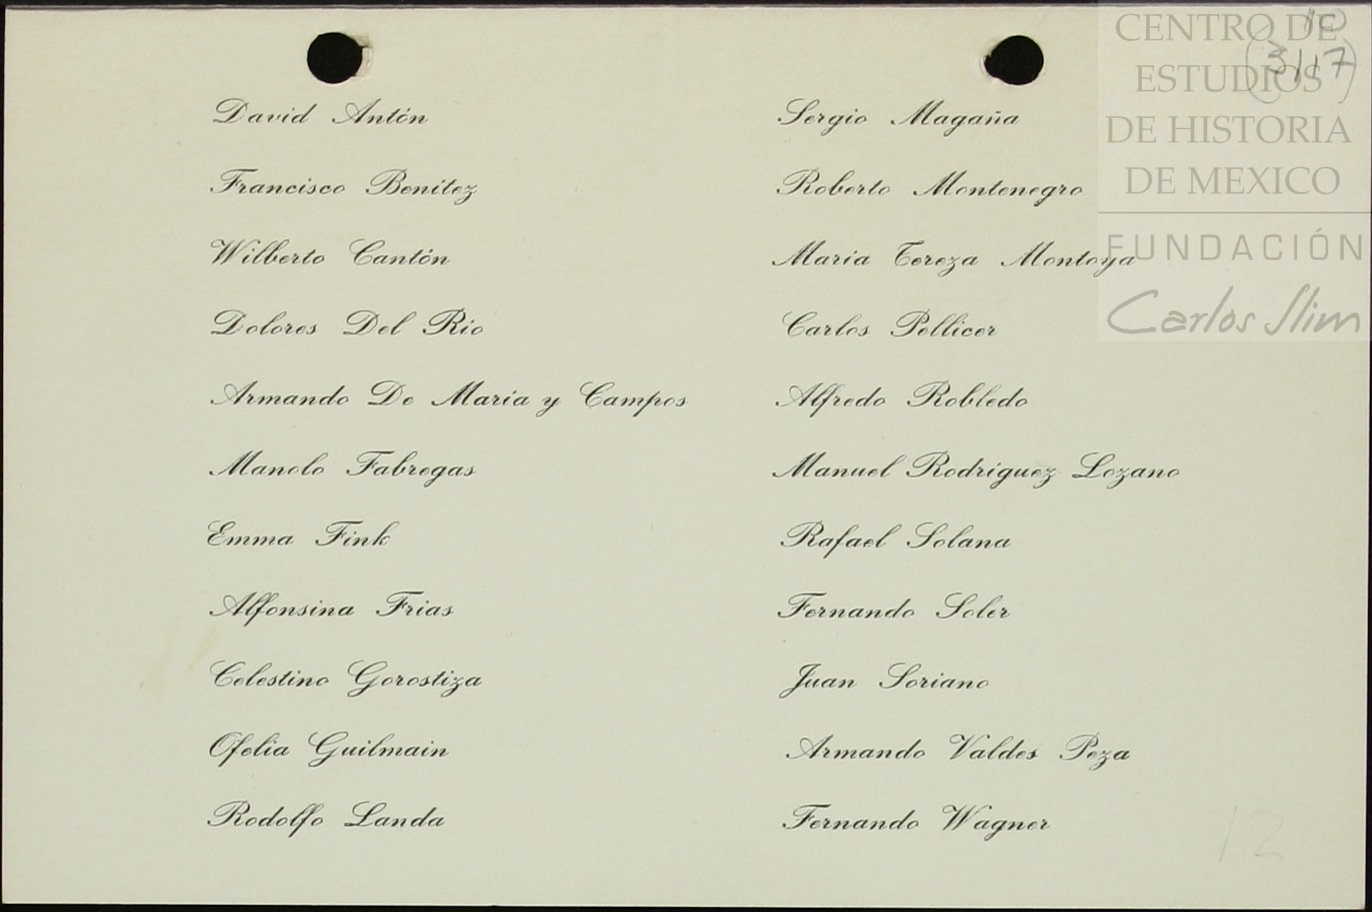 David Antón
Francisco Benítez
Wilberto Cantón
Dolores Del Río
Armando De María y Campos
Manolo Fabregas
Emma Fink
Alfonsina Frias
Celestino Gorostiza
Ofelia Guilmain
Rodolfo Landa
Sergio Magaña
Roberto Montenegro
Maria Tereza Montoya
Carlos Pellicer
Alfredo Robledo
Manuel Rodríguez Lozano
Rafael Solana
Fernando Soler
Juan Soriano
Armando Valdes Peza
Fernando Wagner
12
(3/17)
CENTRO DE
ESTUDIOS
DE HISTORIA
DE MEXICO
FUNDACIÓN
Carlos Slim